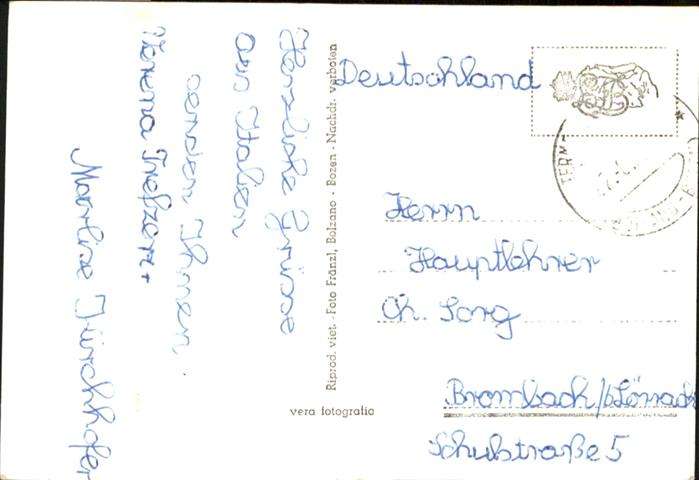 Herzliche Grüsse
aus Italien
senden Ihnen
Verena Trefzer +
Marlise Kirchhofer
Riprod. viet. - Foto Fränzl, Bolzano - Bozen - Nachdr. verboten
vera fotografia
Deutschland
TERM
Herrn
Hauptlehrer
Ch. Sorg
Brombach/b.Lörrach
Schulstraße 5